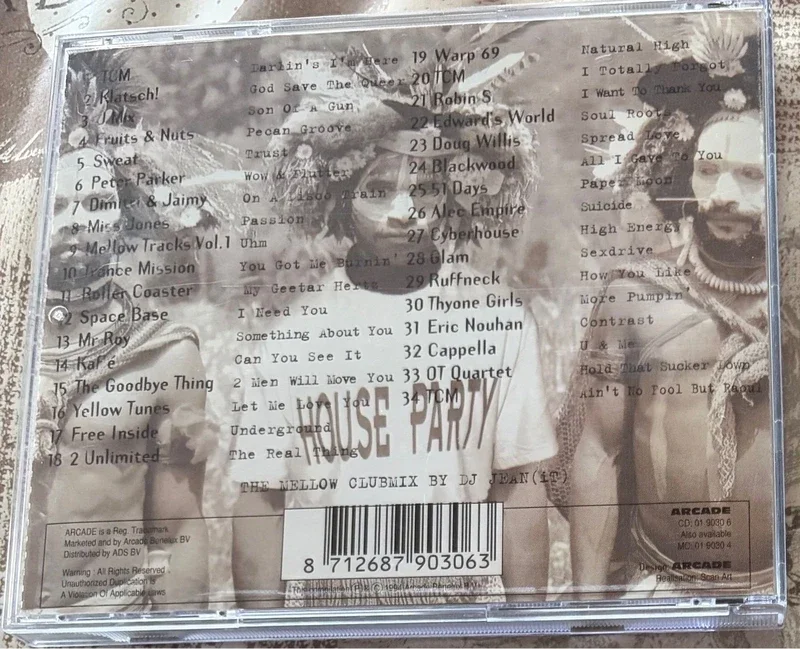 1 TCM Darlin's I'm Here
2 Klatsch! God Save The Queer
3 J Mix Son Of A Gun
4 Fruits & Nuts Pecan Groove
5 Sweat Trust
6 Peter Parker Wow & Flutter
7 Dimitri & Jaimy On A Disco Train
8 Miss Jones Passion
9 Mellow Tracks Vol.1 Uhm
10 Trance Mission You Got Me Burnin'
11 Roller Coaster My Geetar Hertz
12 Space Base I Need You
13 Mr Roy Something About You
14 Kaf'e Can You See It
15 The Goodbye Thing 2 Men Will Move You
16 Yellow Tunes Let Me Love You
17 Free Inside Underground
18 2 Unlimited The Real Thing
19 Warp 69 Natural High
20 TCM I Totally Forgot
21 Robin S I Want To Thank You
22 Edward's World Soul Roots
23 Doug Willis Spread Love
24 Blackwood All I Gave To You
25 51 Days Paper Moon
26 Alec Empire Suicide
27 Cyberhouse High Energy
28 Glam Sexdrive
29 Ruffneck How You Like
30 Thyone Girls More Pumpin'
31 Eric Nouhan Contrast
32 Cappella U & Me
33 OT Quartet Hold That Sucker Down
34 TCM Ain't No Pool But Raoul
HOUSE PARTY
THE MELLOW CLUBMIX BY DJ JEAN(iT)
ARCADE is a Reg. Trademark
Marketed and by Arcade Benelux BV
Distributed by ADS BV
Warning : All Rights Reserved
Unauthorized Duplication is
A Violation Of Applicable Laws
8 712687 903063
ARCADE
CD: 01 9030 6
Also available
MC: 01 9030 4
Design: ARCADE
Realisation: Scan Art